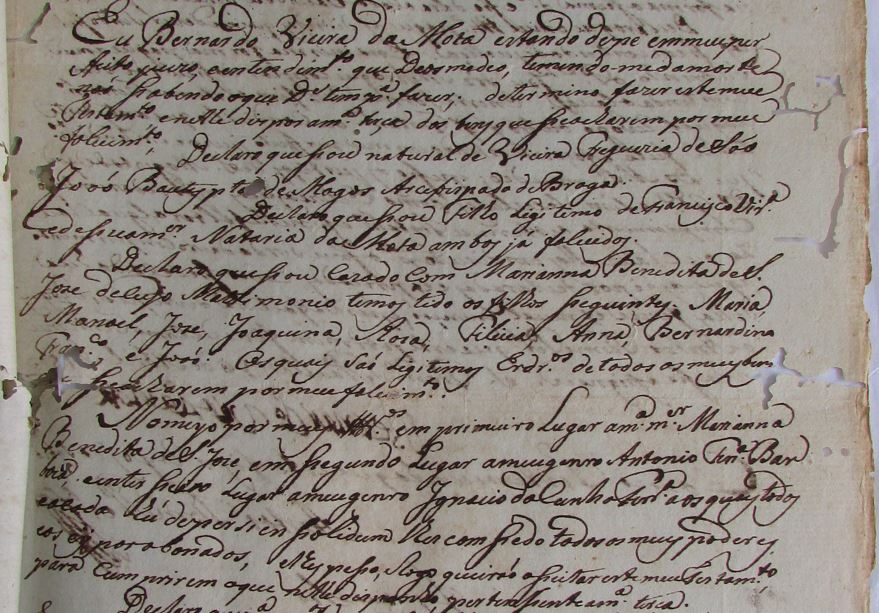 Eu Bernardo Vieira da Mota estando de pe em meu per
feito juizo, e entendim.to que Deos me deo, temendo-me da morte
não sabendo o que D.s tem p.a fazer, determino fazer este meu
testam.to e nelle dispor a m.a terça dos bens que se acharem por meu
falecim.to
Declaro que sou natural de Vieira Freguezia de São
João Bauptysta de Mogos Arcebispado de Braga.
Declaro que sou Filho Legitimo de Francisco Vir.a
e de sua m.er Nataria da Mota ambos já falecidos.
Declaro que sou Cazado Com Marianna Benedita de S.
Jose de cujo Matrimonio temos tido os filhos seguintes. Maria,
Manoel, Jose, Joaquina, Rosa, Felicia, Anna, Bernardina
Fran.co, e João. Os quais são Legitimos Erdr.os de todos os meus bens
se acharem por meu falecim.to.
Nomeyo por meus em primeiro Lugar a m.a m.er Marianna
Benedita de S. Jose, em segundo Lugar a meu genro Antonio Fr.a Bar
boza e em terseiro Lugar a meu genro Ignacio da Cunha Ferr.a aos quais todos
e a cada hu de per si in solidum com sedo todos os meus poderes
por abonados, e lhes pesso, e logo queirão aseitar este meu testam.to
para Cumprirem o que nelle disponho pertensente a m.a terça.
Declaro que